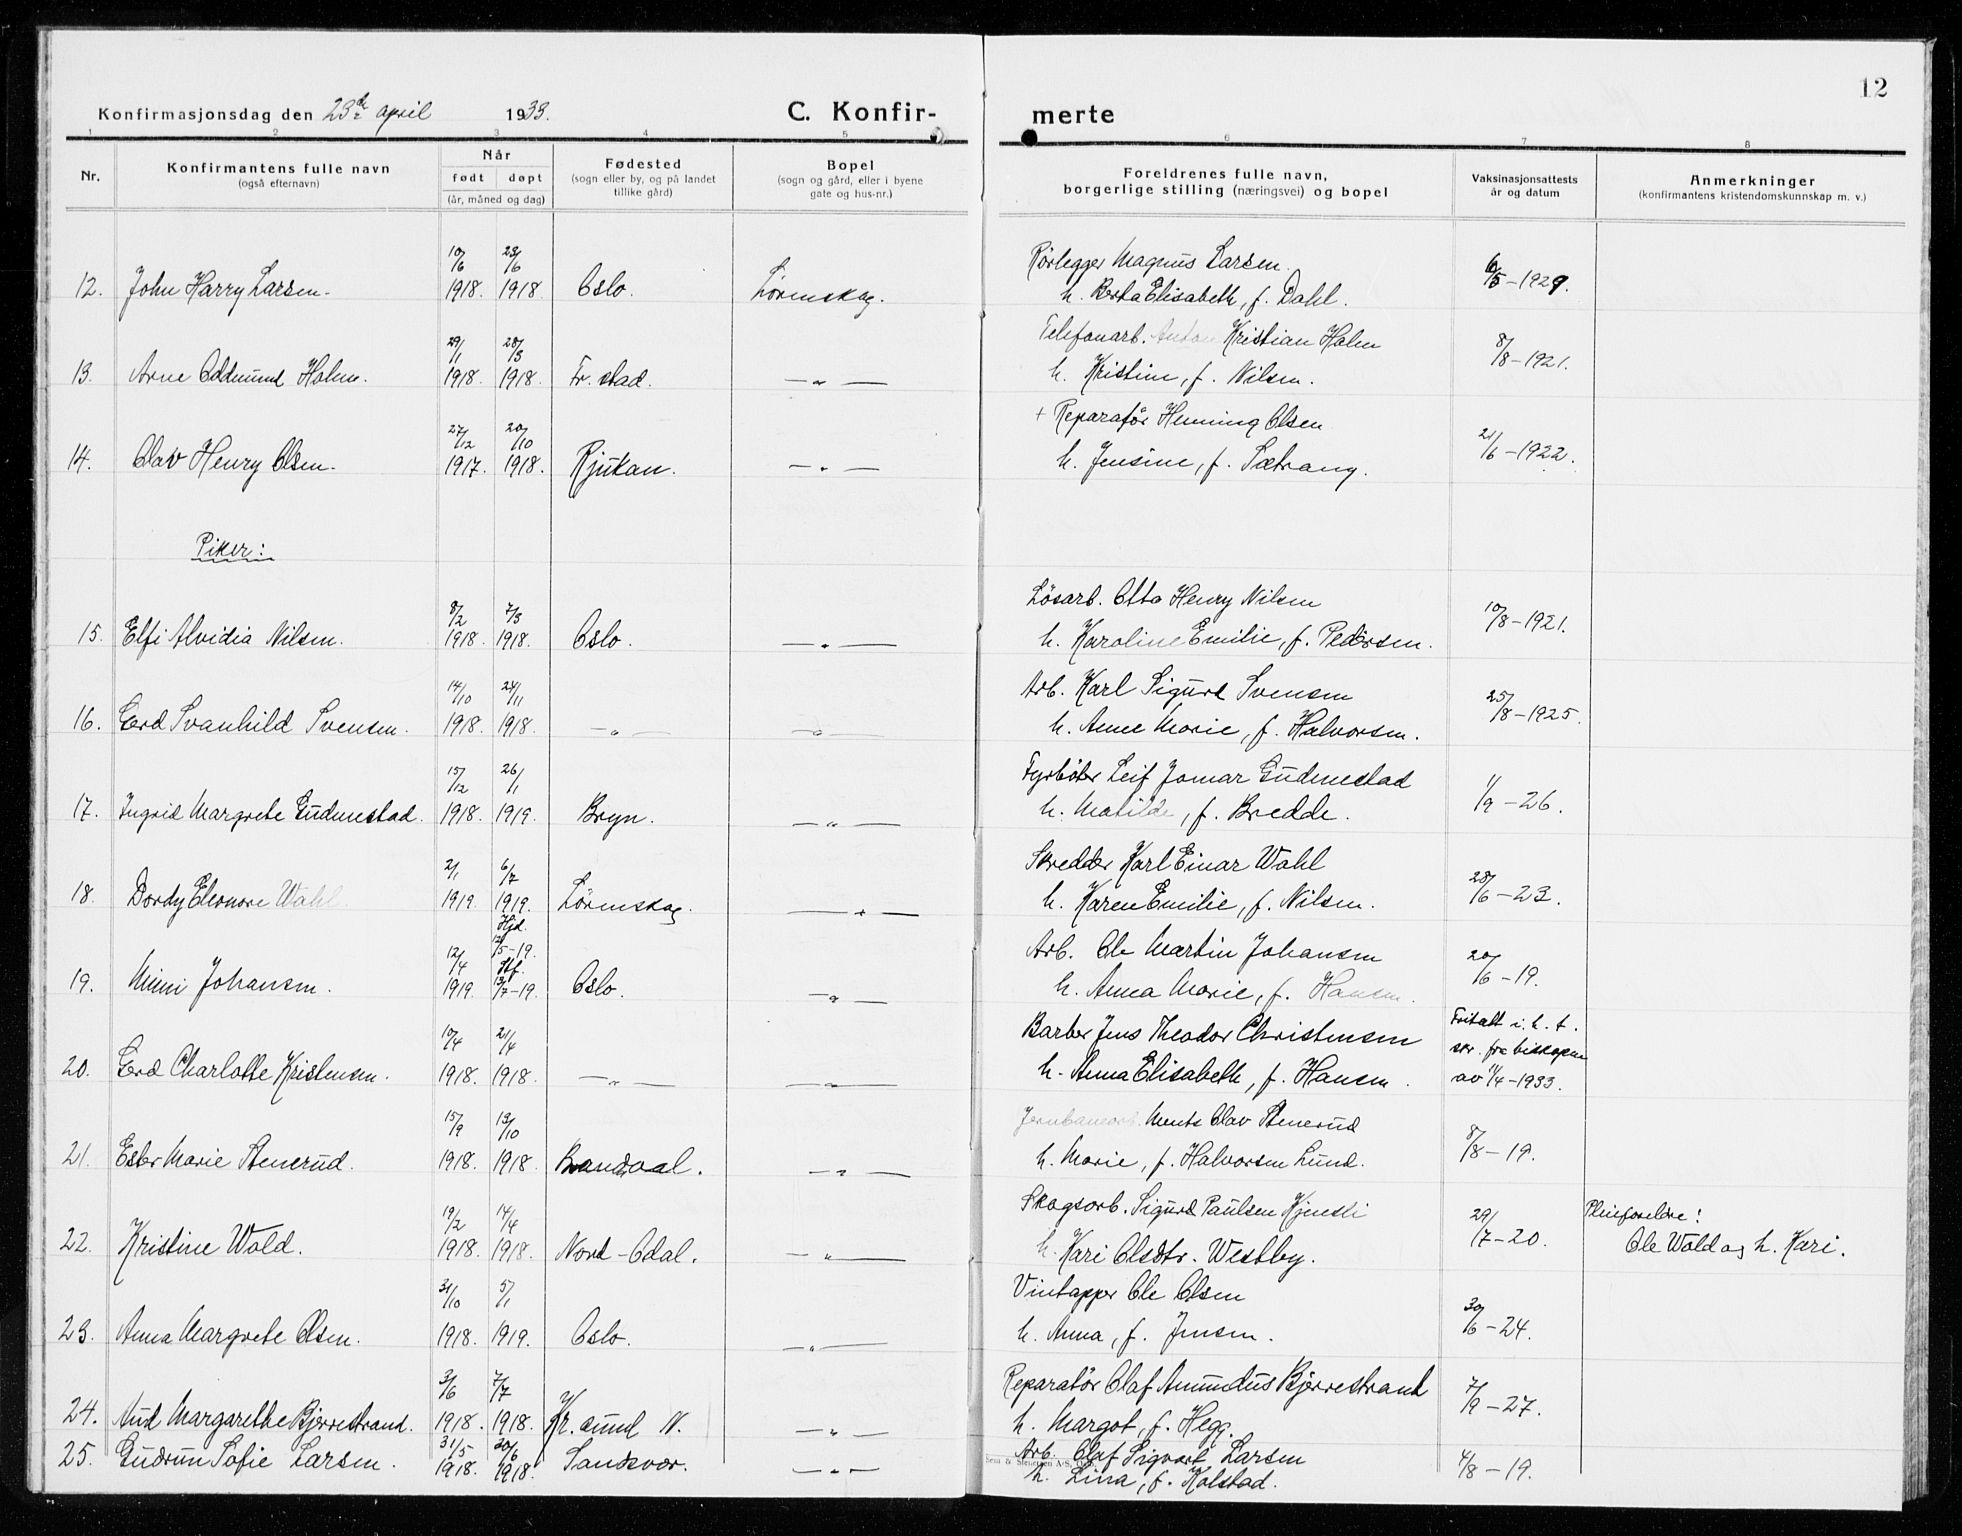 12
Konfirmasjonsdag den 23de april 1933.
C. Konfir-
merte
1 2 3 4 5 6 7 8
Nr.
Konfirmantens fulle navn
(også efternavn)
Når
født døpt
(år, måned og dag)
Fødested
(sogn eller by, og på landet
tillike gård)
Bopel
(sogn og gård, eller i byene
gate og hus-nr.)
Foreldrenes fulle navn,
borgerlige stilling (næringsvei) og bopel
Vaksinasjonsattests
år og datum
Anmerkninger
(konfirmantens kristendomskunnskap m. v.)
10/6 23/6 Rørlegger Magnus Larsen
12. John Harry Larsen. 1918. 1918. Oslo. Lørenskog. h. Berta Elisabeth, f. Dahl. 6/5-1929.
29/1 28/3 Telefonarb. Anton Kristian Holm
13. Arne Oddmund Holm. 1918. 1918. Fr.stad. —„— h. Kristine, f. Nilsen. 8/8-1921.
27/12 20/10 + Reparatør Henning Olsen
14. Olav Henry Olsen. 1917. 1918. Rjukan. —„— h. Jensine, f. Sætrang. 21/6-1922.
Piker:
8/2 7/3 Løsarb. Otto Henry Nilsen
15. Elfi Alvidia Nilsen. 1918. 1918. Oslo. —„— h. Karoline Emilie, f. Pedersen. 10/8-1921.
14/10 24/11 Arb. Karl Sigurd Svensen
16. Gerd Svanhild Svensen. 1918. 1918. —„— —„— h. Anne Marie, f. Halvorsen. 25/8-1925.
15/12 26/1 Fyrbøter Leif Jomar Gudmestad
17. Ingrid Margrete Gudmestad. 1918. 1919. Bryn. —„— h. Matilde, f. Bredde. 1/9-26.
2/1 6/7 Skredder Karl Einar Wahl
18. Dordy Eleonore Wahl. 1919. 1919. Lørenskog. —„— h. Karen Emilie, f. Nilsen. 28/6-23.
Hjd.
12/4 12/5-19. Arb. Ole Martin Johansen
Stf.
19. Mimi Johansen. 1919. 13/7-19. Oslo. —„— h. Anna Marie, f. Hansen. 20/6-19.
10/4 21/4 Barber Jens Theodor Christensen Fritatt i. h. t.
skr. fra biskopen
20. Gerd Charlotte Kristensen. 1918. 1918. —„— —„— h. Anna Elisabeth, f. Hansen. av 11/4-1933.
15/9 13/10 Jernbanearb. Ments Olav Stenerud
21. Ester Marie Stenerud. 1918. 1918. Brandval. —„— h. Marie, f. Halvorsen Lund. 8/8-19.
19/2 14/4 Skogsarb. Sigurd Paulsen Kjensli Pleieforeldre:
22. Kristine Wold. 1918. 1918. Nord-Odal. —„— h. Kari Olsdtr. Westby. 29/7-20. Ole Wold og h. Kari.
31/10 5/1 Vintapper Ole Olsen
23. Anna Margrete Olsen. 1918. 1919. Oslo. —„— h. Anna, f. Jensen. 30/6-24.
3/6 7/7 Reparatør Olaf Amundus Bjerrestrand
24. Aud Margarethe Bjerrestrand. 1918. 1918. Kr.sund N. —„— h. Margot, f. Hegg. 7/9-27.
31/5 30/6 Arb. Olaf Sigvart Larsen
25. Gudrun Sofie Larsen. 1918. 1918. Sandsvær. —„— h. Lina, f. Kolstad. 4/8-19.